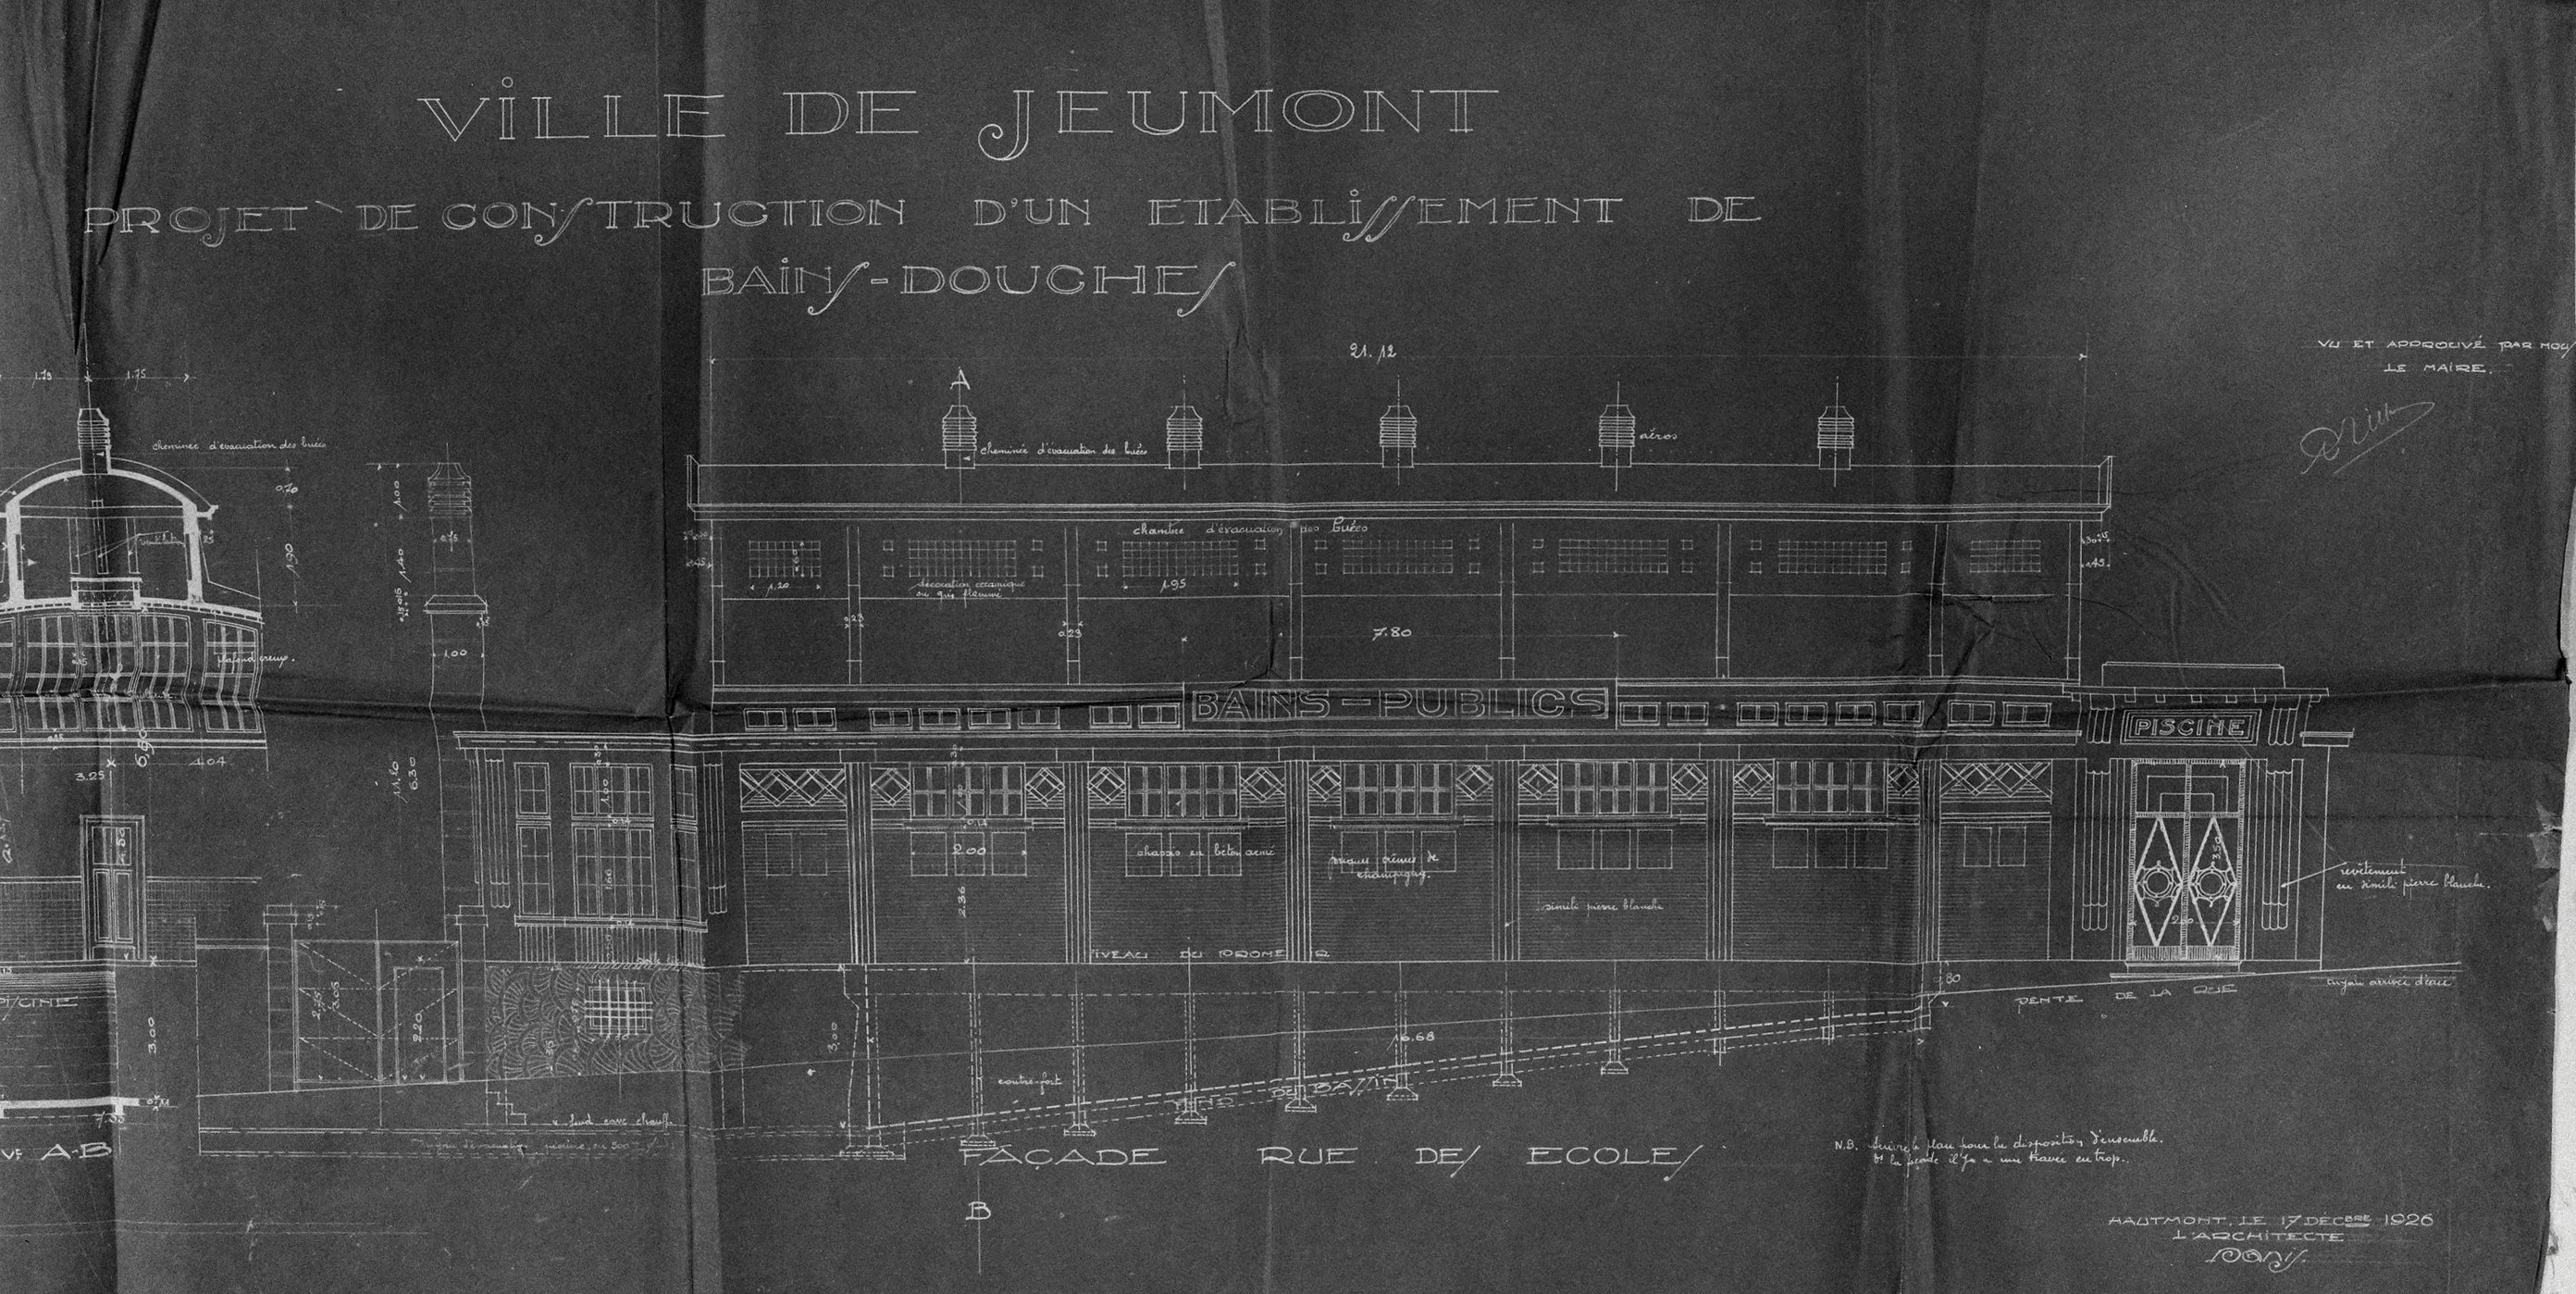 VILLE DE JEUMONT
PROJET DE CONSTRUCTION D'UN ETABLISSEMENT DE
BAINS-DOUCHES
21.12
VU ET APPROUVÉ PAR NOUS
LE MAIRE.
1.75 1.75
A
cheminée d'évacuation des buées
cheminée d'évacuation des buées
aéros
0.70
1.00
chambre d'évacuation des buées
1.90
0.75
1.40
0.60
1.20
décoration céramique
ou grès flammé
1.95
.45
0.23
0.23
7.80
plafond creux.
1.00
BAINS-PUBLICS
PISCINE
3.25
4.04
11.20
6.30
1.00
0.14
0.14
2.00
chassis en béton armé
briques crèmes de
champigny.
3.50
revêtement
en simili pierre blanche.
1.50
1.60
2.36
simili pierre blanche
2.00
NIVEAU DU
PISCINE
.80
PENTE DE LA RUE
tuyau arrivée d'eau
3.05
2.20
3.00
3,00
16.68
contre-fort
FOND DU BASSIN
7.55
fond cave chauff.
A-B
FAÇADE RUE DES ECOLES
N.B. Suivre le plan pour la disposition d'ensemble.
Dt la façade il y a une travée en trop.
B
HAUTMONT, LE 17 DÉCBRE 1926
L'ARCHITECTE